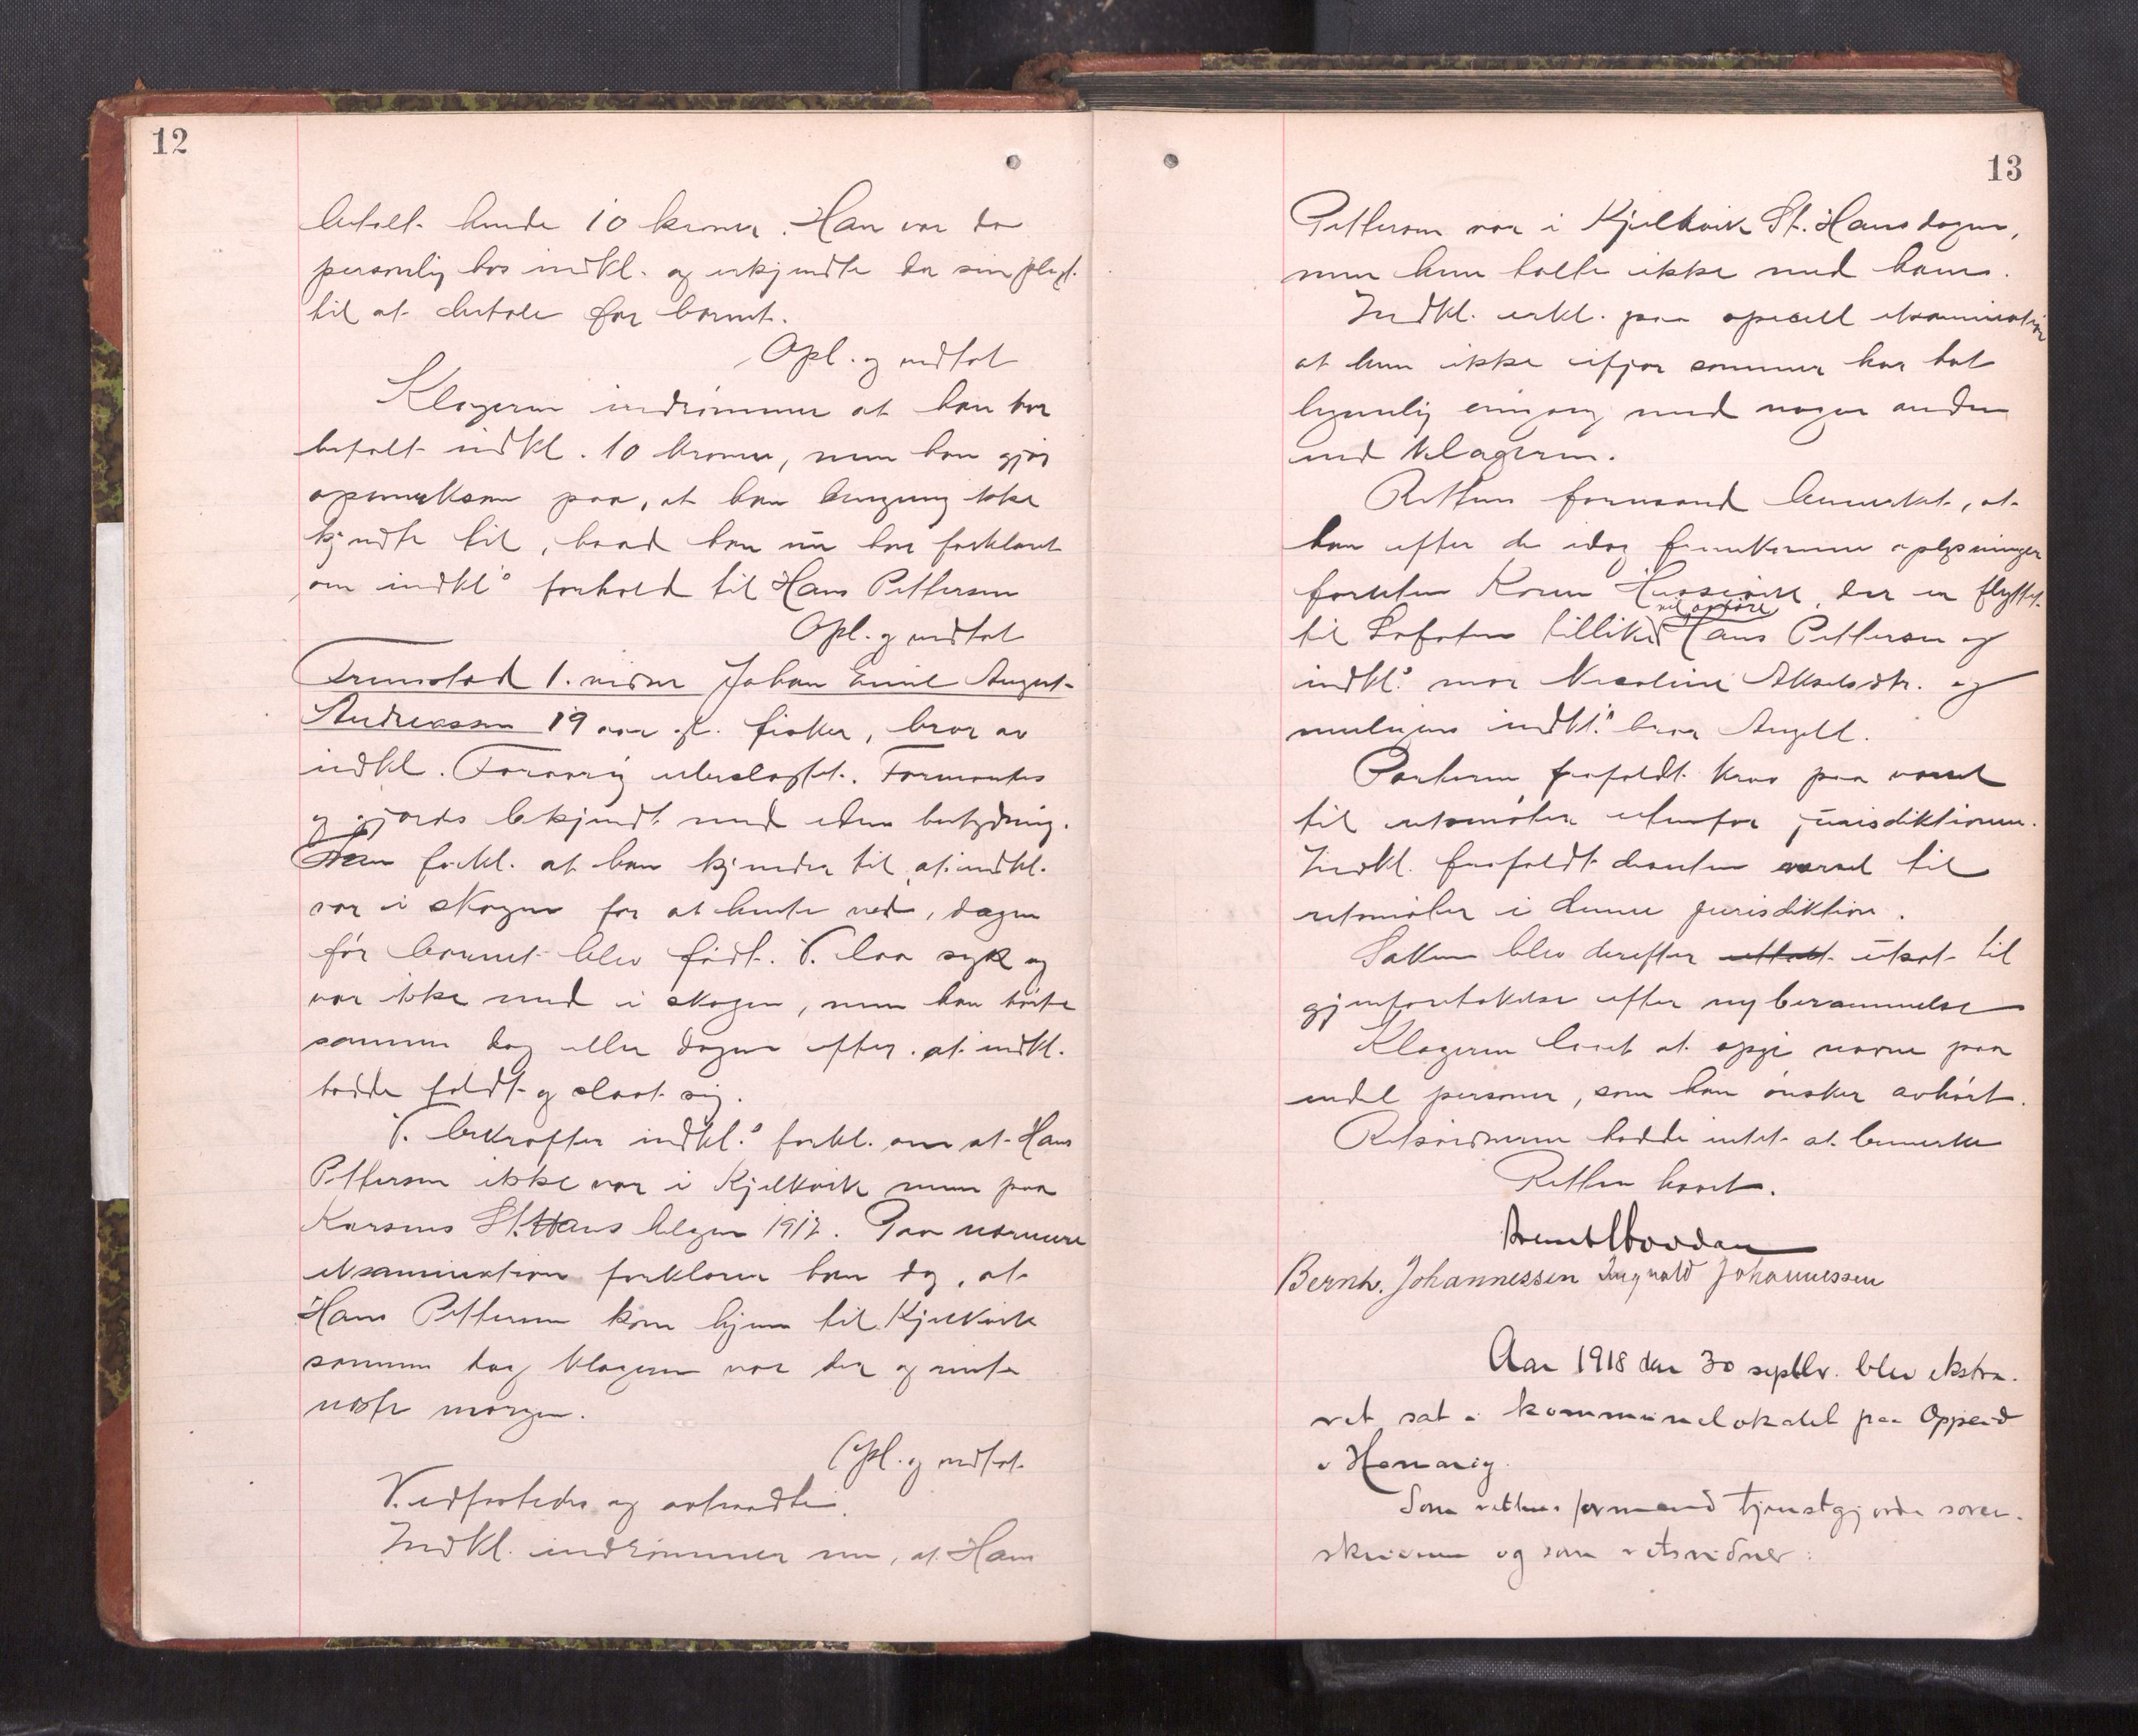 12
betalt hende 10 kroner. Han var da
personlig hos indkl. og erkjendte da sin pligt
til at betale for barnet.
Opl. og vedtat
Klageren indrømmer at han har
betalt indkl. 10 kroner, men han gjør
opmerksom paa, at han dengang ikke
kjendte til, hvad han nu har forklaret
om indkl's forhold til Hans Pettersen
Opl. og vedtat
Fremstod 1. vidne Johan Emil August
Andreassen 19 aar gl. fisker, bror av
indkl. Forøvrig ubeslægtet. Formantes
og gjordes bekjendt med edens betydning.
Han forkl. at han kjender til, at indkl.
var i skogen for at hente ved, dagen
før barnet blev født. V. laa syk og
var ikke med i skogen, men han hørte
samme dag eller dagen efter at indkl.
hadde faldt og slaat sig.
V. bekræfter indkl.s forkl. om at Hans
Pettersen ikke var i Kjelkvik men paa
Karsnes St. Hans helgen 1917. Paa nærmere
eksamination forklarer han dog, at
Hans Pettersen kom hjem til Kjelkvik
samme dag klageren var der og reiste
næste morgen.
Opl. og vedtat.
V. edfæstedes og avtraadte.
Indkl. indrømmer nu, at Hans
13
Pettersen var i Kjelkvik St. Hansdagen,
men hun talte ikke med ham.
Indkl. erkl. paa speciell eksamination
at hun ikke ifjor sommer har hat
legemlig omgang med nogen anden
end klageren.
Rettens formand bemerket, at
han efter de idag fremkomne oplysninger
foruten Karen der er flyttet
til Lofoten tillike vil avhøre Hans Pettersen og
indkl.s mor Nicoline Akselsdtr. og
muligens indkl.s bror Angell.
Parterne frafaldt krav paa varsel
til retsmøter utenfor jurisdiktionen.
Indkl. frafaldt desuten varsel til
retsmøter i denne jurisdiktion.
Saken blev derefter utsat til
gjenforetakelse efter ny berammelse
Klageren lovet at opgi navne paa
endel personer, som han ønsker avhørt.
Retsvidnerne hadde intet at bemerke
Retten hævet.
Bernh. Johannessen Ingvald Johannessen
Aar 1918 den 30 septbr. blev ekstra-
ret sat i kommunelokalet paa Oppeid
i Hamarøy.
Som rettens formand tjenstgjorde soren-
skriveren og som retsvidner: